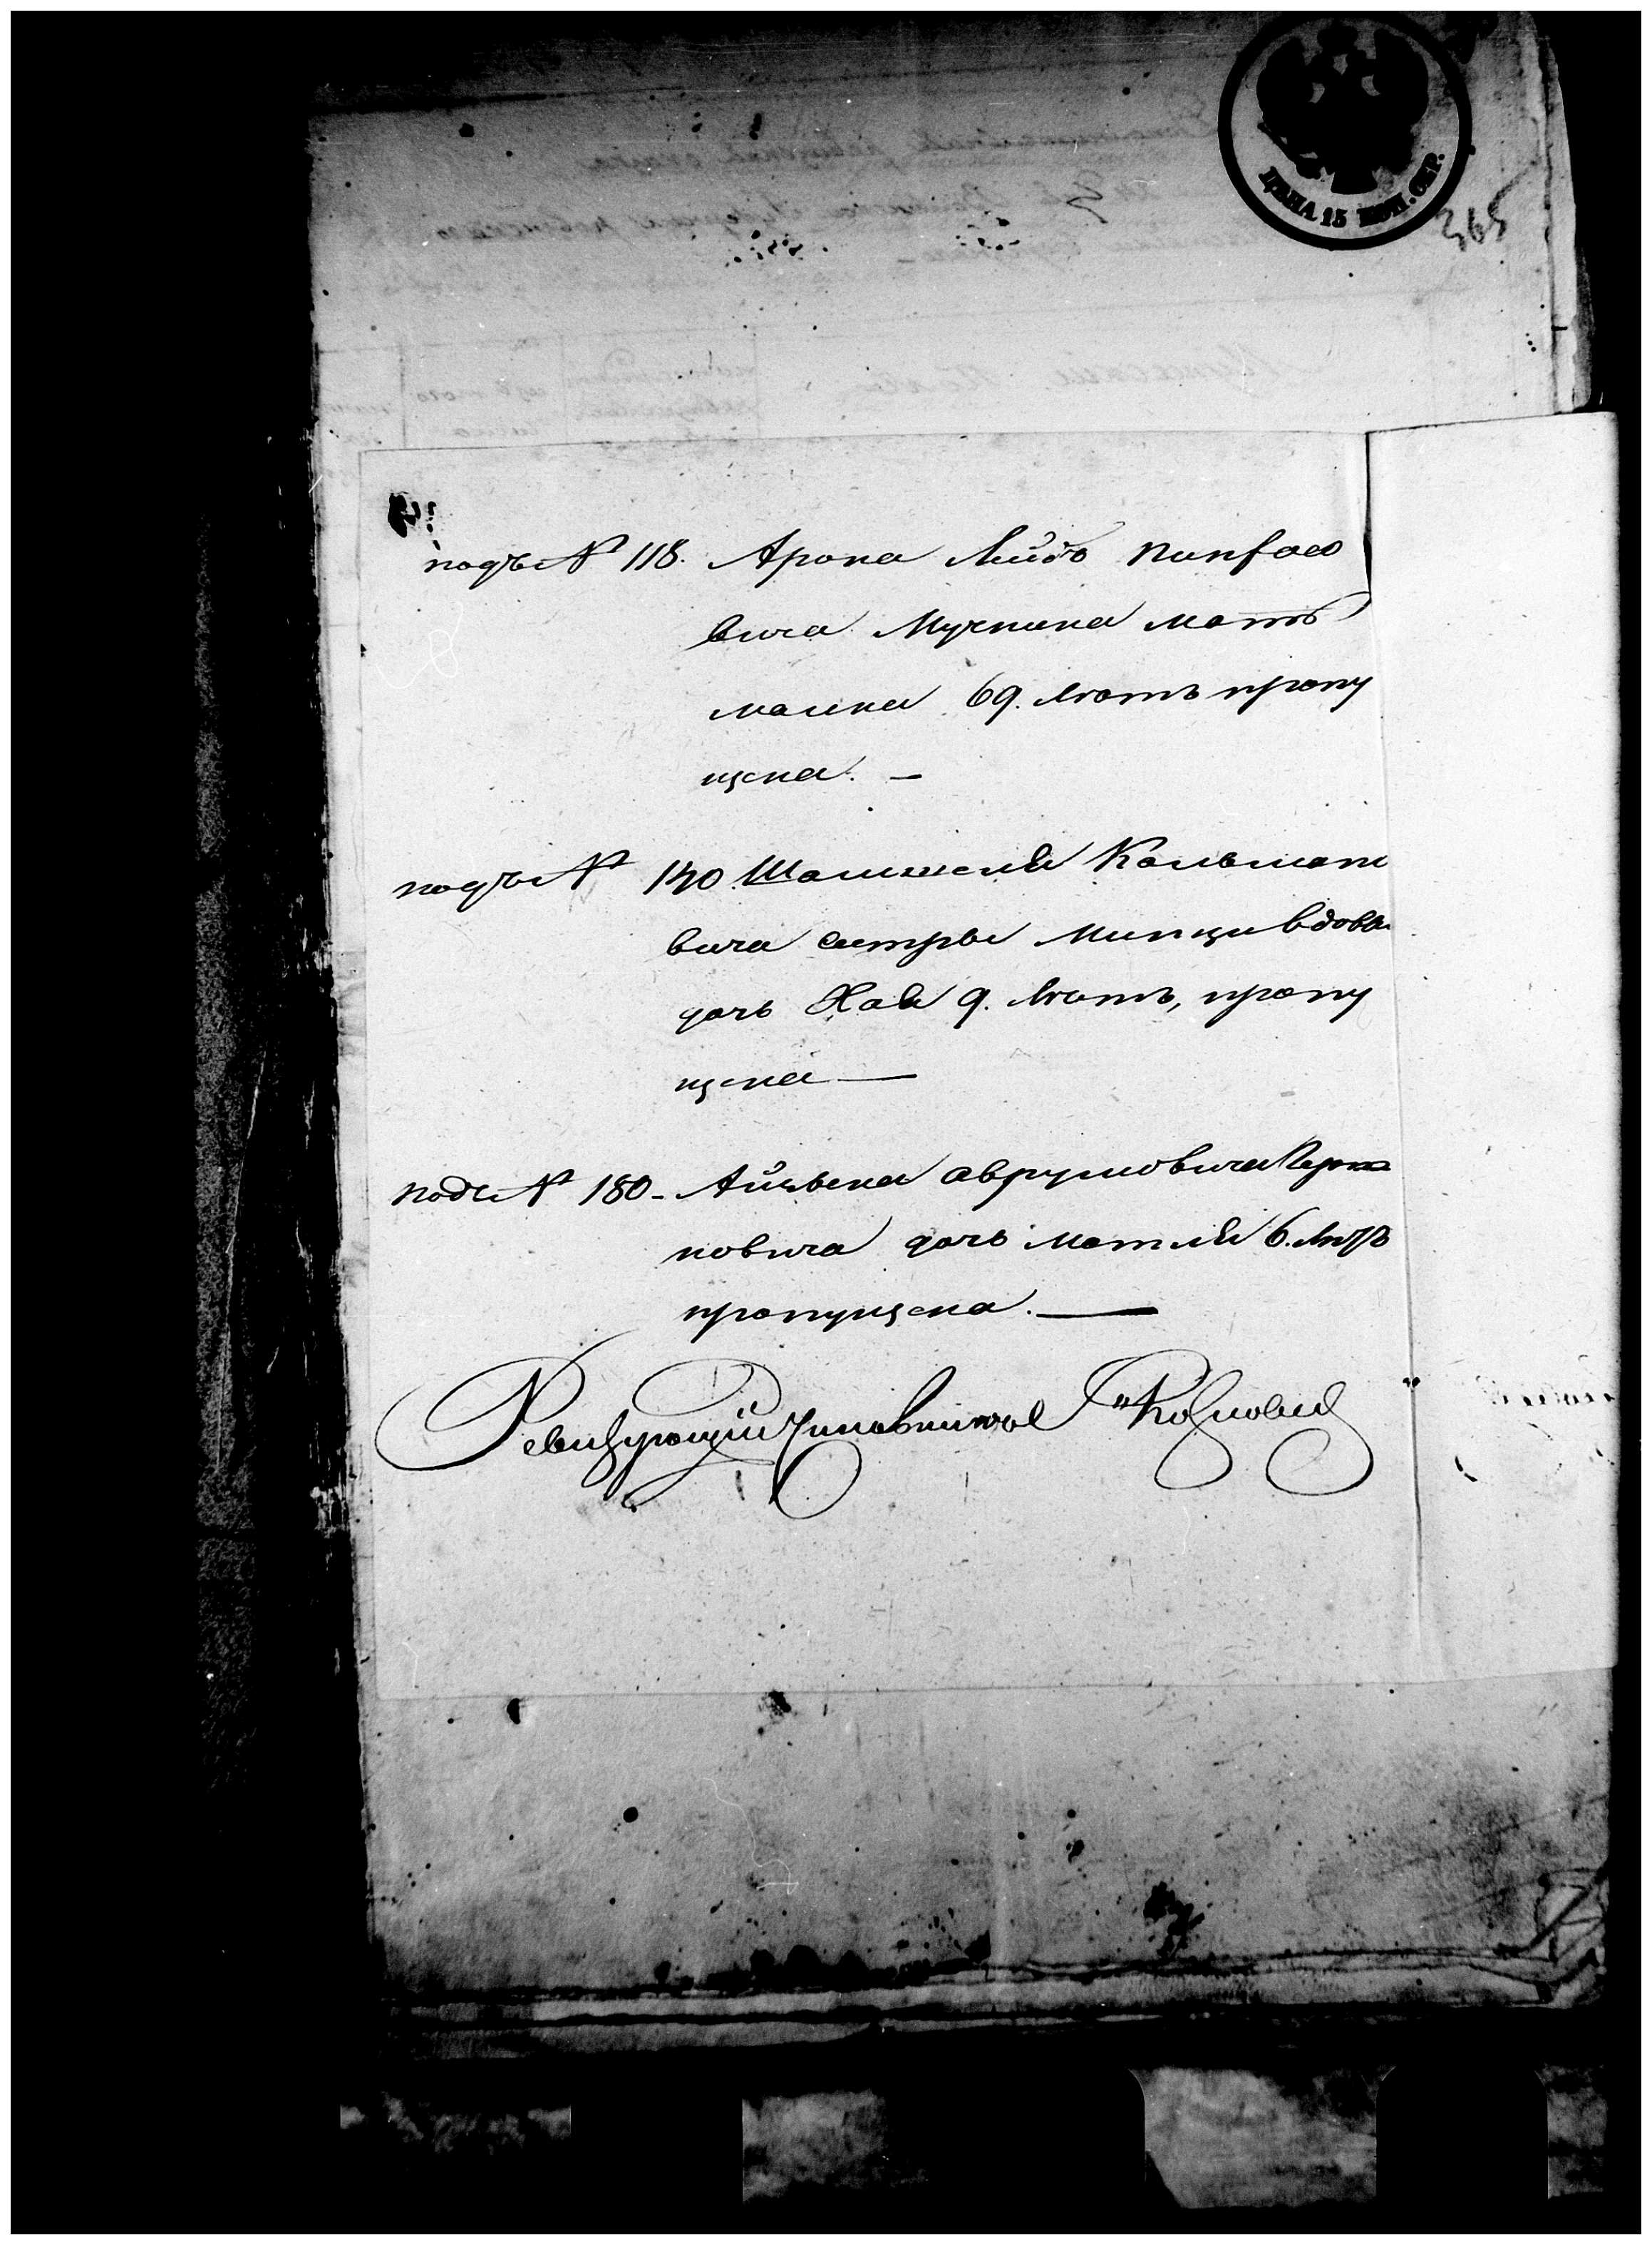 ЦѢНА 15 КОП. СЕР.
365
подъ № 118. Арона Лейбъ Пинфасо
вича Мучника мать
малка 69. лѣтъ пропу
щена. —
подъ № 140. Шамшелй Кальмано
вича сестры Минци вдовы
дочь Хая 9. лѣтъ, пропу
щена —
подъ № 180 - Айзыка Аврумовича
новича дочь матля 6. лѣтъ
пропущена. —
Ревизующій Чиновникъ